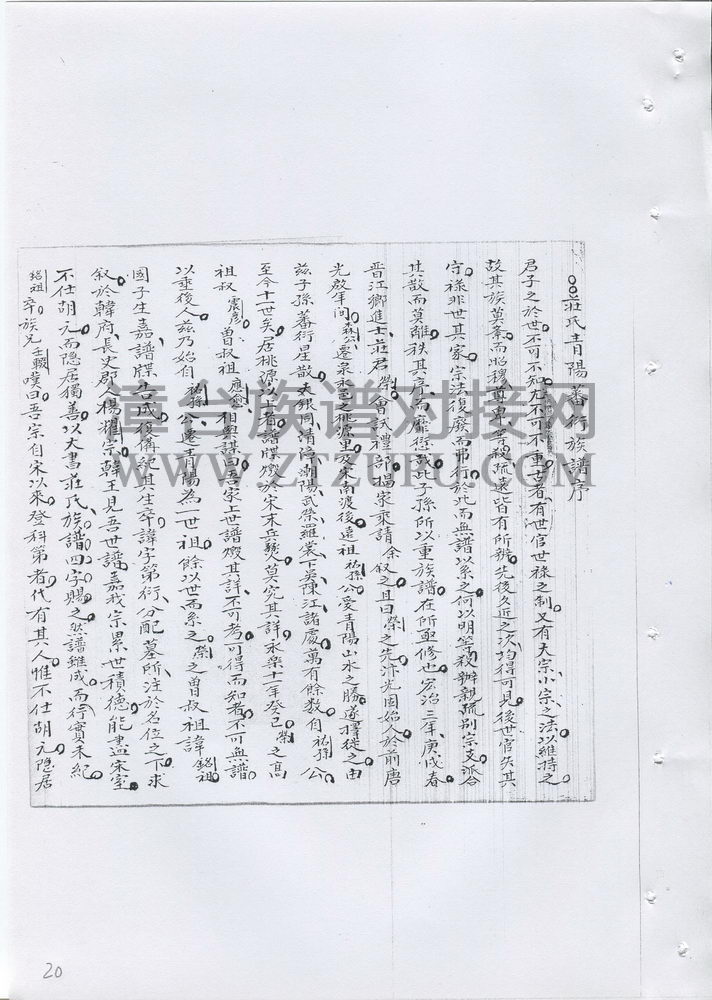 莊氏青陽蕃衍族譜序
君子之於世不可不知尤不可不重古者有世官世祿之制又有大宗小宗之法以維持之
故其族莫紊而昭穆尊卑等殺疏遠皆有所辨先後久近之次均得可見後世官失其
守祿非世其家宗法復廢而弗行於此而無譜以系之何以明等殺辦親疏別宗支派合
其散而莫離秩其序而靡愆哉此子孫所以重族譜在所亟修也宏治三年庚戌春
晉江鄉進士莊君榮會試禮部揚家乘請余叙之且曰榮之先汴光固始人於前唐
光啟年间森公遷泉永邑之桃源里及宋南渡後遠祖祐孫公愛青陽山水之勝遂擇從之由
兹子孫蕃衍星散夫銀同清漳潮陽武榮羅裳下吳陳江諸處萬有餘数自祐孫公
至今十一世矣居桃源以上者譜牒燬於宋末兵燹莫究其詳永樂十一年癸巳榮之高
祖叔震彦曾叔祖應密相與謀曰吾家上世譜燬其詳不可考可得而知者不可無譜
以垂後人兹乃始自祐孫公遷青陽為一世祖餘以世而系之榮之曾叔祖諱銘祖
國子生嘉譜牒告成復備紀其生卒諱字第衍分配墓所注於名位之下求
叙於韓府長史郡人楊攉宗韓王見吾世譜嘉我宗累世積德能盡宋室
不仕胡元而隱居獨善以大書莊氏族譜四字賜之然譜雖成而行實未紀
銘祖卒族兄壬輟嘆曰吾宗自宋以來登科第者代有其人惟不仕胡元隱居
20
漳台族谱对接网
WWW.ZTZUPU.COM